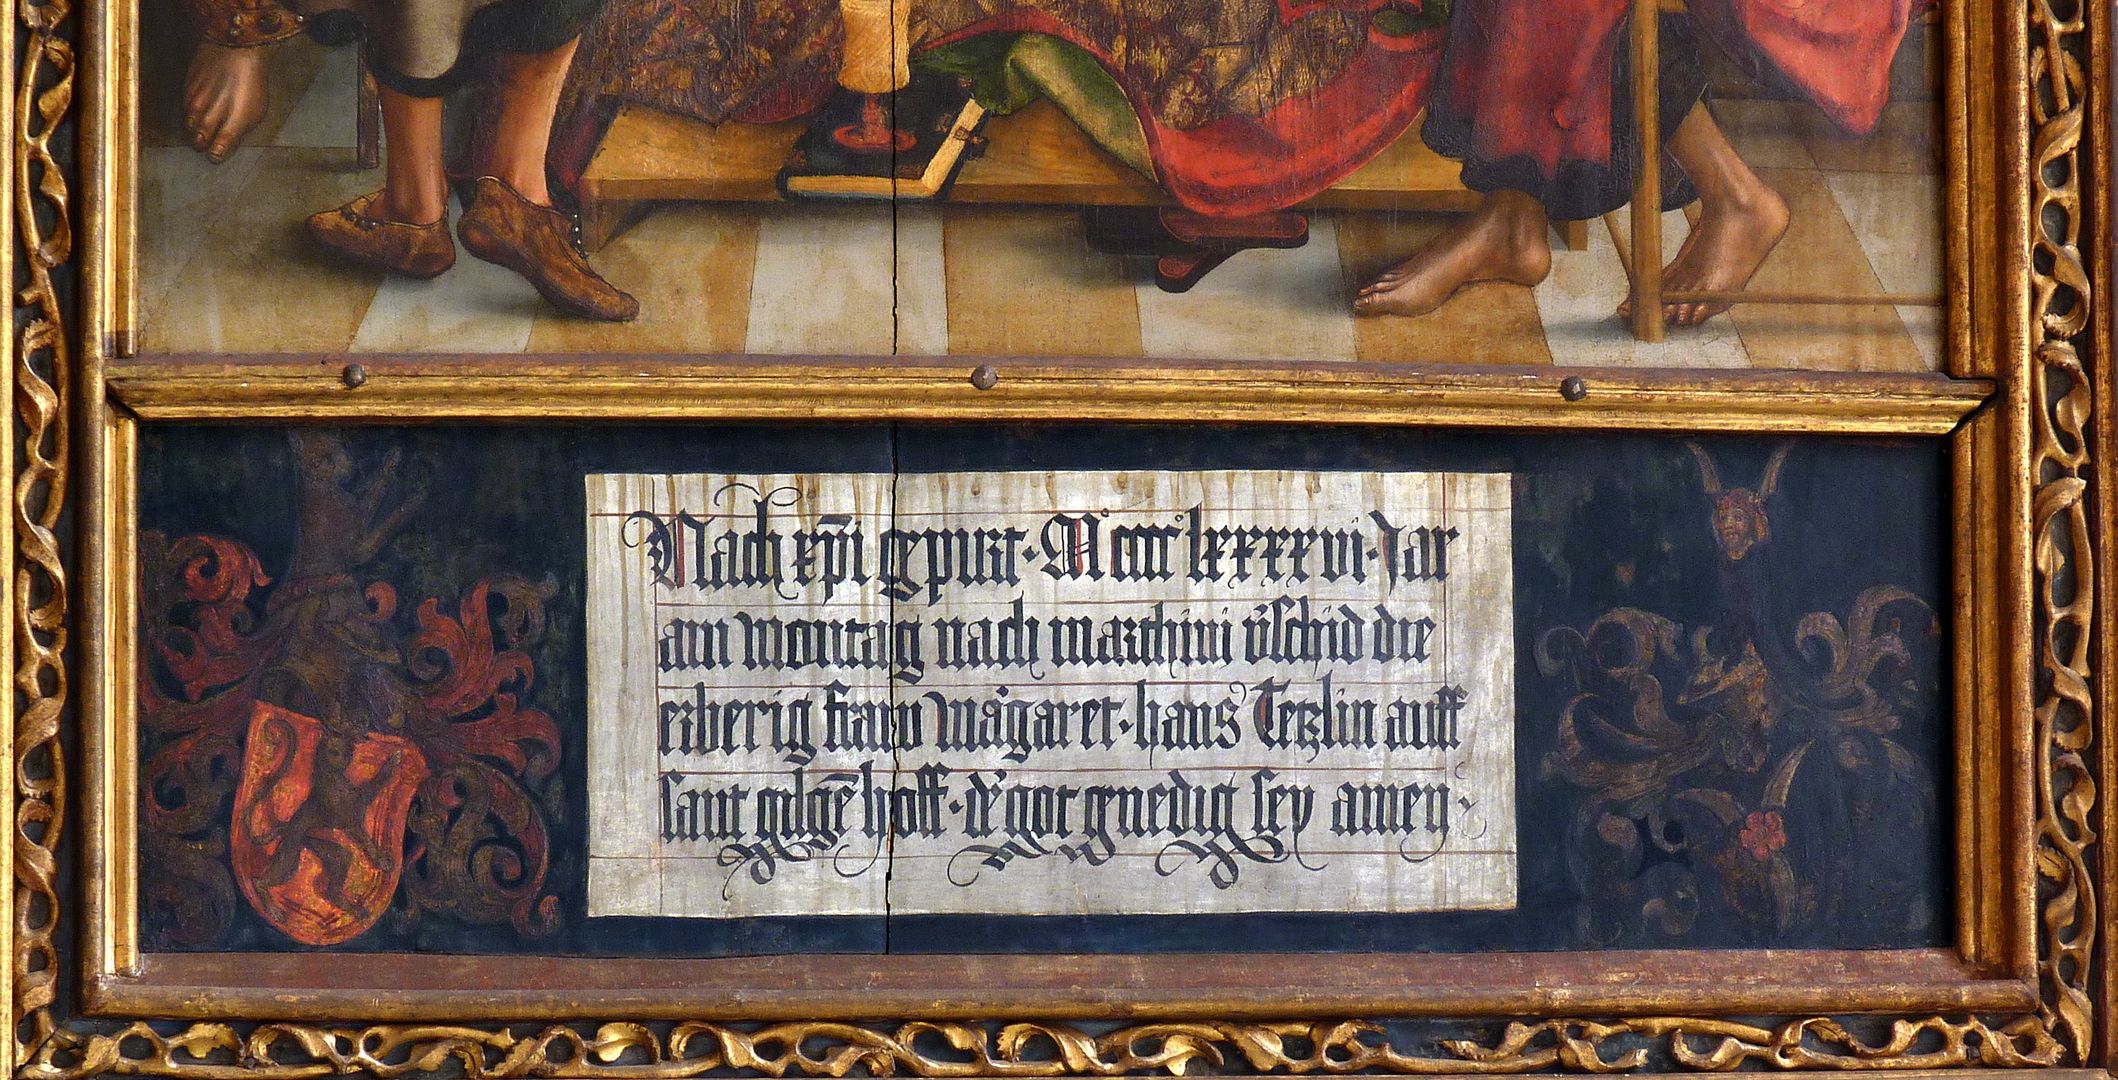 Nach xp̄i gepurt · M° cccc° lxxxxvi · Jar
am montag nach marthini v̾schid die
erberig fraw margaret · hans Tetzlin auff
sant gilgē hoff · d̾ got genedig sey amen ·